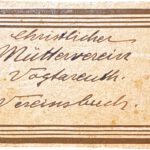 Christlicher
Mütterverein
Vogtareuth.
Vereinsbuch.